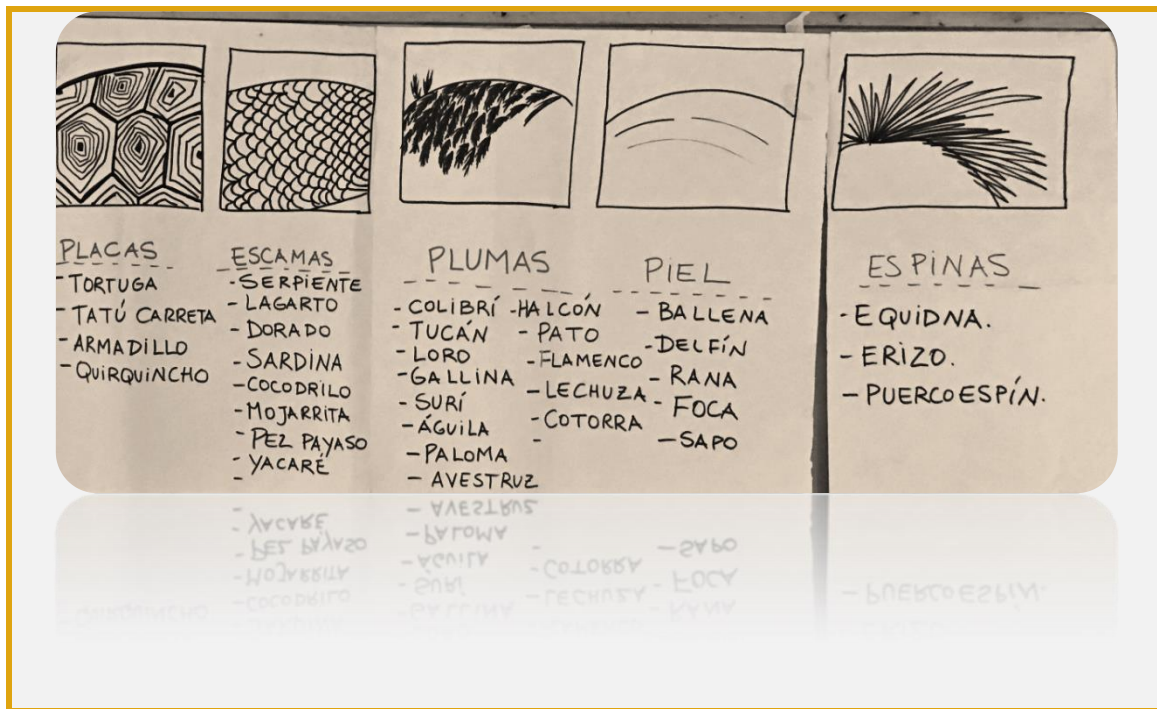 PLACAS
- TORTUGA
- TATÚ CARRETA
- ARMADILLO
- QUIRQUINCHO
ESCAMAS
- SERPIENTE
- LAGARTO
- DORADO
- SARDINA
- COCODRILO
- MOJARRITA
- PEZ PAYASO
- YACARÉ
-
PLUMAS
- COLIBRÍ
- TUCÁN
- LORO
- GALLINA
- SURÍ
- ÁGUILA
- PALOMA
- AVESTRUZ
- HALCÓN
- PATO
- FLAMENCO
- LECHUZA
- COTORRA
-
PIEL
- BALLENA
- DELFÍN
- RANA
- FOCA
- SAPO
ESPINAS
- EQUIDNA.
- ERIZO.
- PUERCOESPÍN.